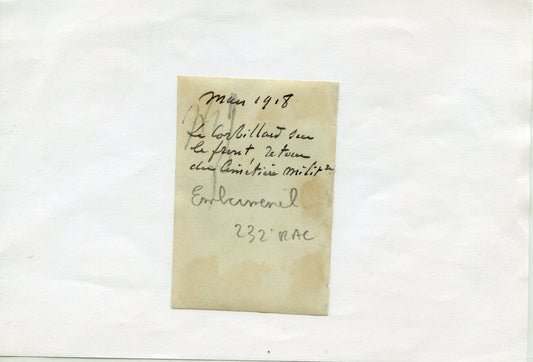 Mars 1918
Le Corbillard sur
le front retour
du Cimetière milit re
Embermenil
232e RAC